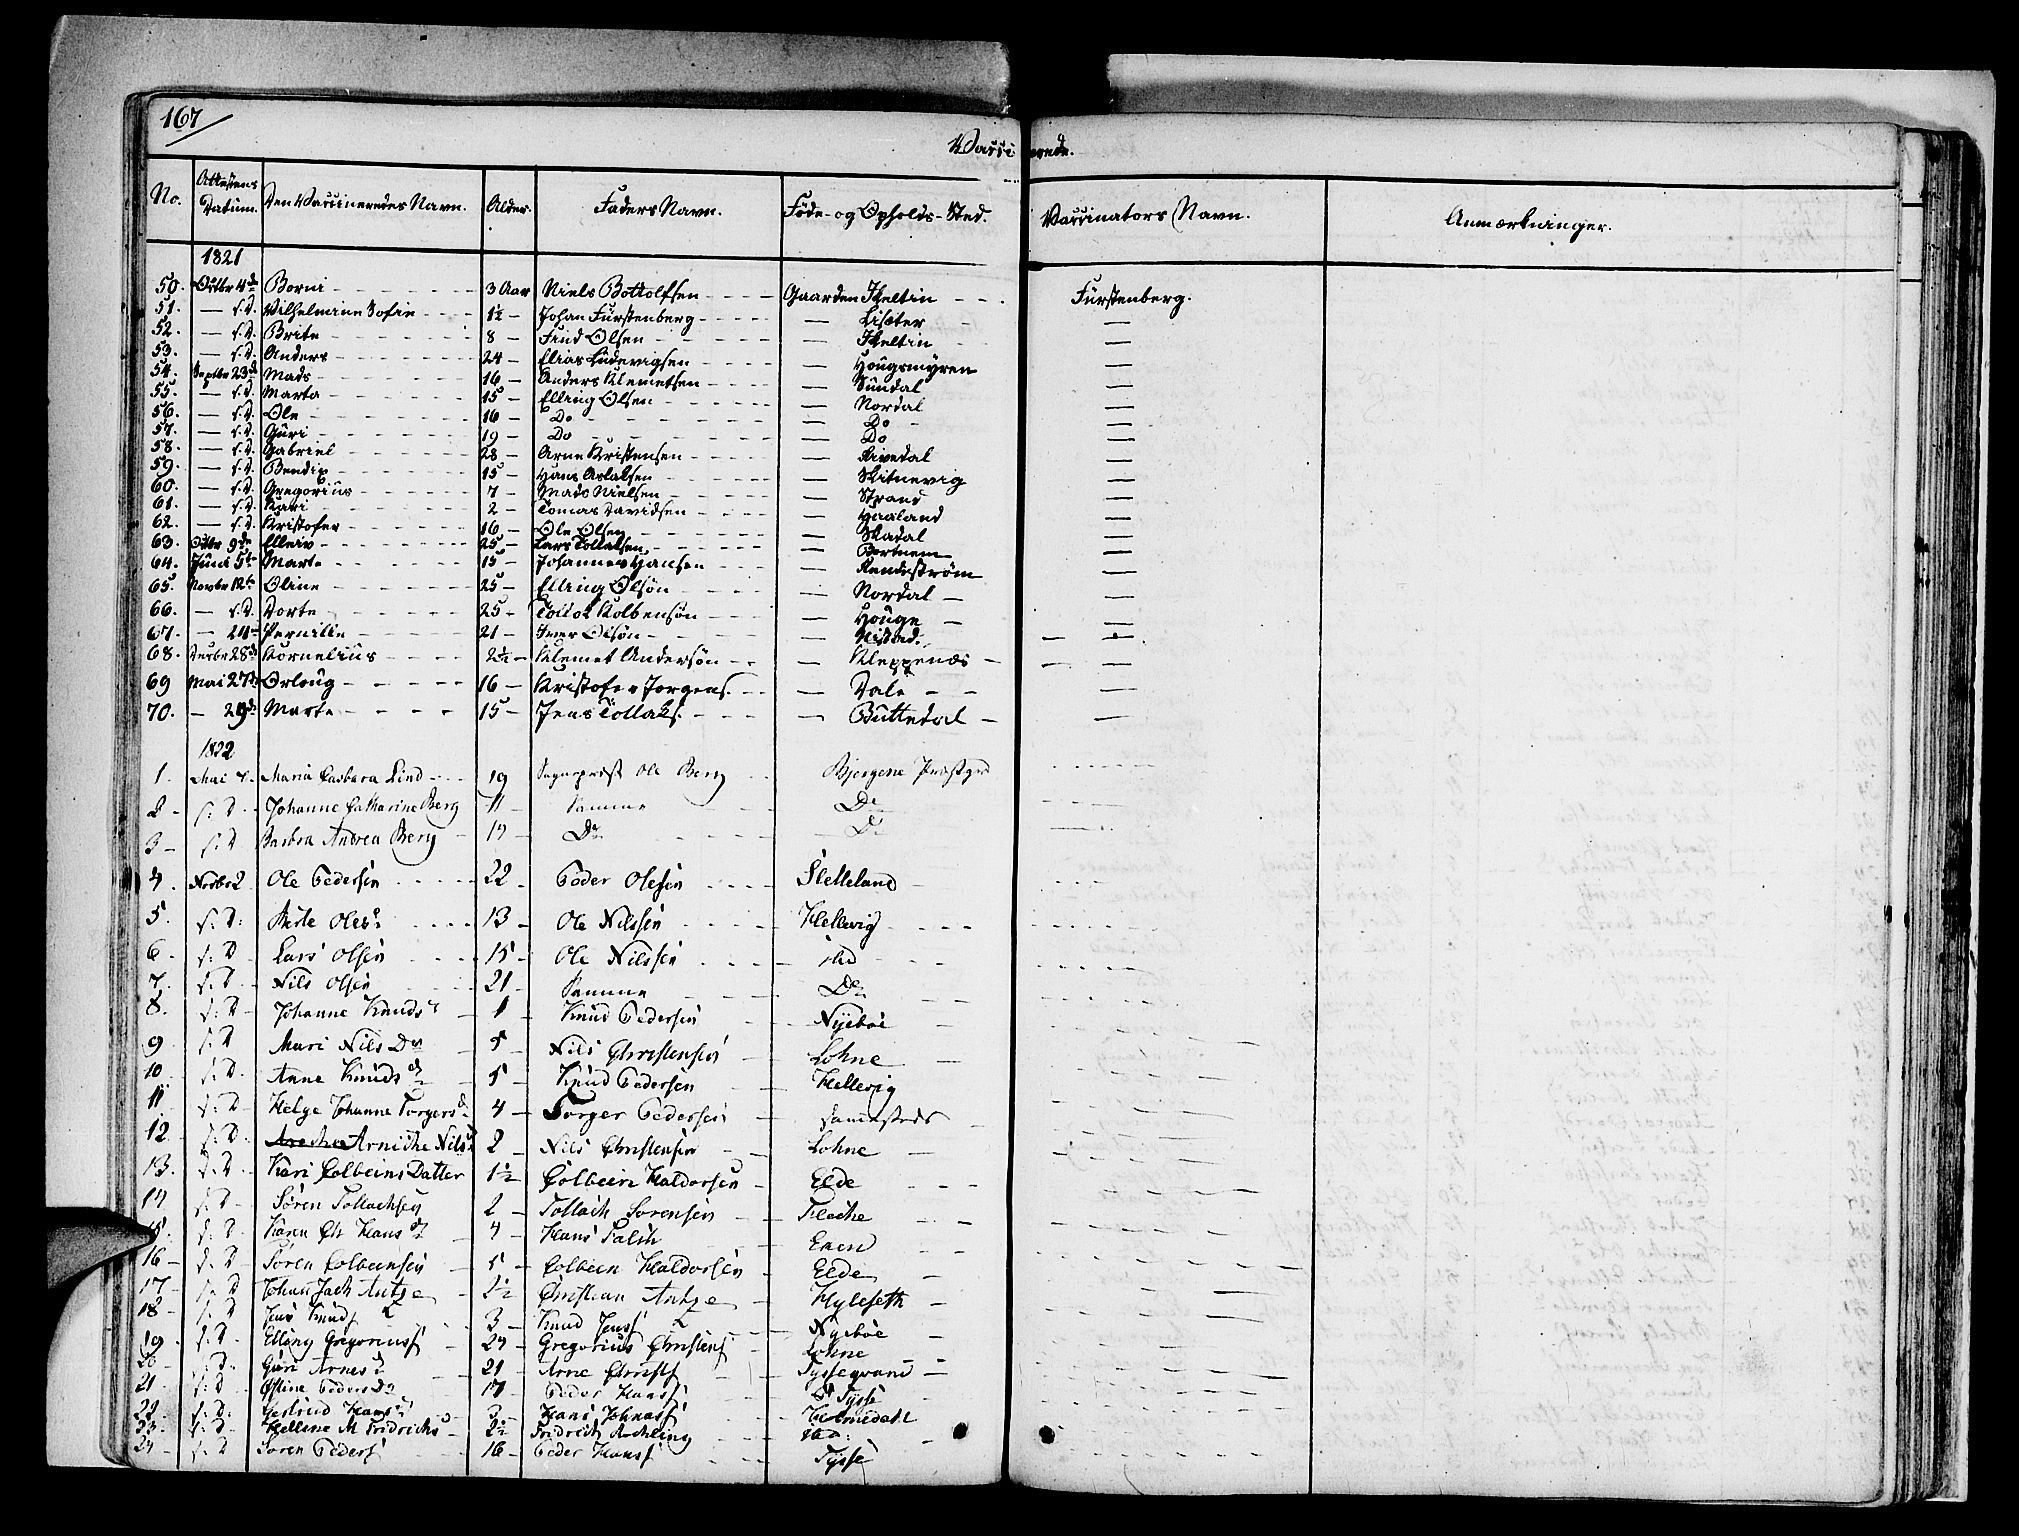 167
Vaccinerede.
No. Attestens Datum. Den Vaccineredes Navn. Alder. Faders Navn. Føde- og Opholds-Sted. Vaccinators Navn. Anmærkninger.
1821
50. Octbr 4de Borni 3 Aar Niels Bottolfsen Gaarden Heltin Fürstenberg.
51. — s.D. Wilhelmine Sofie 1½ — Johan Fürstenberg — Lisæter —
52. — s.D. Brite 8 — Find Olsen — Heltin —
53. — s.D. Anders 24 — Elias Ludevigsen — Hougsmyren —
54. Septbr 23de Mads 16 — Anders Klemetsen — Sündal —
55. — s.D. Marta 15 — Elling Olsen — Nordal —
56. — s.D. Ole 16 — Do — Do —
57. — s.D. Guri 19 — Do — Do —
58. — s.D. Gabriel 28 — Arne Kristensen — Rivedal —
59. — s.D. Bendix 15 — Hans Aslaksen — Skitnevig —
60. — s.D. Gregorius 7 — Mads Nielsen — Strand —
61. — s.D. Kari 2 — Tomas Davidsen — Haaland —
62. — s.D. Kristofer 16 — Ole Olsen — Skadal —
63. Octbr 9de Elleiv 25 — Lars Tollaksen — Bortnem —
64. Juni 5te Marte 15 — Johannes Hansen — Rendestrøm —
65. Novbr 12te Oline 25 — Elling Olsøn — Nordal —
66. — s.D. Dorte 25 — Tollok Kolbensøn — Houge —
67. — 24de Pernille 21 — Iver Olsøn — Nistad. — —
68. Decbr 28de Kornelius 2½ — Klemet Andersøn — Kleppenæs — —
69 Mai 27de Orloug 16 — Kristofer Jorgens. — Dale —
70. — 29de Marte 15 — Jens Tollaks. — Büttedal —
1822
1. Mai 7. Maria Barbara Lind 19 Sognepræst Ole Berg Bjergene Præstgrd
2 - s: D. Johanne Catharine Berg 11 Samme Do
3 - s: D Barbra Andrea Berg 17 Do Do
4. Novbr 2 Ole Pedersen 22 Peder Olesen Slelleland
5. s: D: Berte Olesd. 13 Ole Nilssen Hellevig
6. s: D Lars Olsen 15 Ole Nilssen ibid
7. s: D Nils Olsen 21 Samme Do
8. s: D Johanne Knudsd 1 Knud Pedersen Nyebøe
9 s: D Mari Nils Dr 5 Nils Christensen Lohne
10 s: D. Anne Knudsd 5 Knud Pedersen Hellevig
11 s: D Helge Johanne Torgersd. 4 Torger Pedersen samesteds
12 s: D. Arniche Nilsd 2 Nils Christensen Lohne
13. s: D Kari Colbeins Datter 1½ Colbein Haldorsen Elde
14 s: D Søren Tollachsen 2 Tollach Sorensen Fleche
15. s: D. Karen Hansd 4 Hans Falch Enen
16 s: D Søren Colbeensen 5 Colbeen Haldorsen Elde
17 s: D Johan Jach Antze 2½ Christian Antze Hyleseth
18 s: D Jens Knuds 3 Knud Jenss Nyebøe
19 s: D Elling Gregoriuss 24 Gregorius Christens Lohne
20 s: D. Guri Arnesd 21 Arne Christs Tyssegvand
21 s: D Østine Peders Dr 17 Peder Hanss Do Tysse
22 s: D. Gertrud Hansd 3 Hans Johnass Holmedahl
23. s: D Hellene M Fridrichsd 2½ Fridrich Rechling ibd:
24 s: D Søren Peders 16 Peder Hanss Tysse